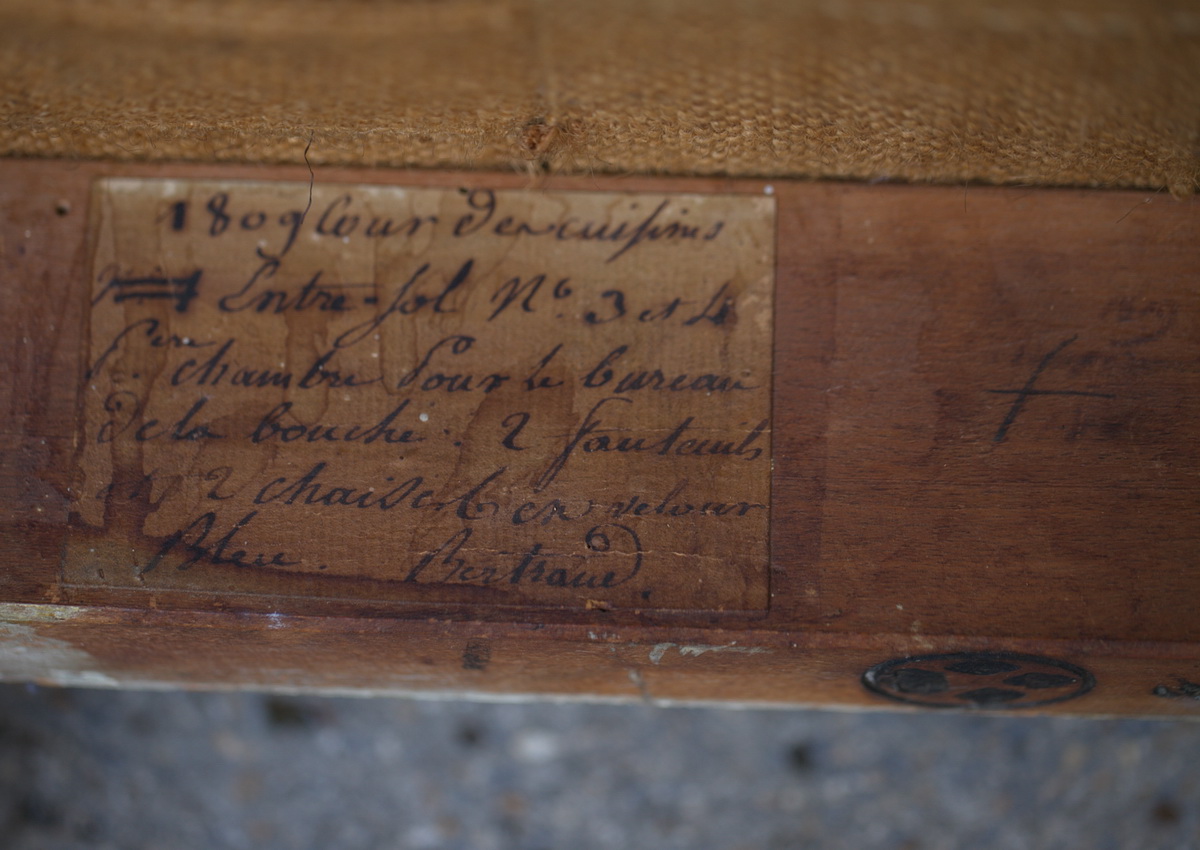 1809 Cour des cuisines
Entre-sol N° 3 et 4
1ere chambre Pour le bureau
De la bouche. 2 fauteuils
2 chaises en velour
Bleu. Bertrand.